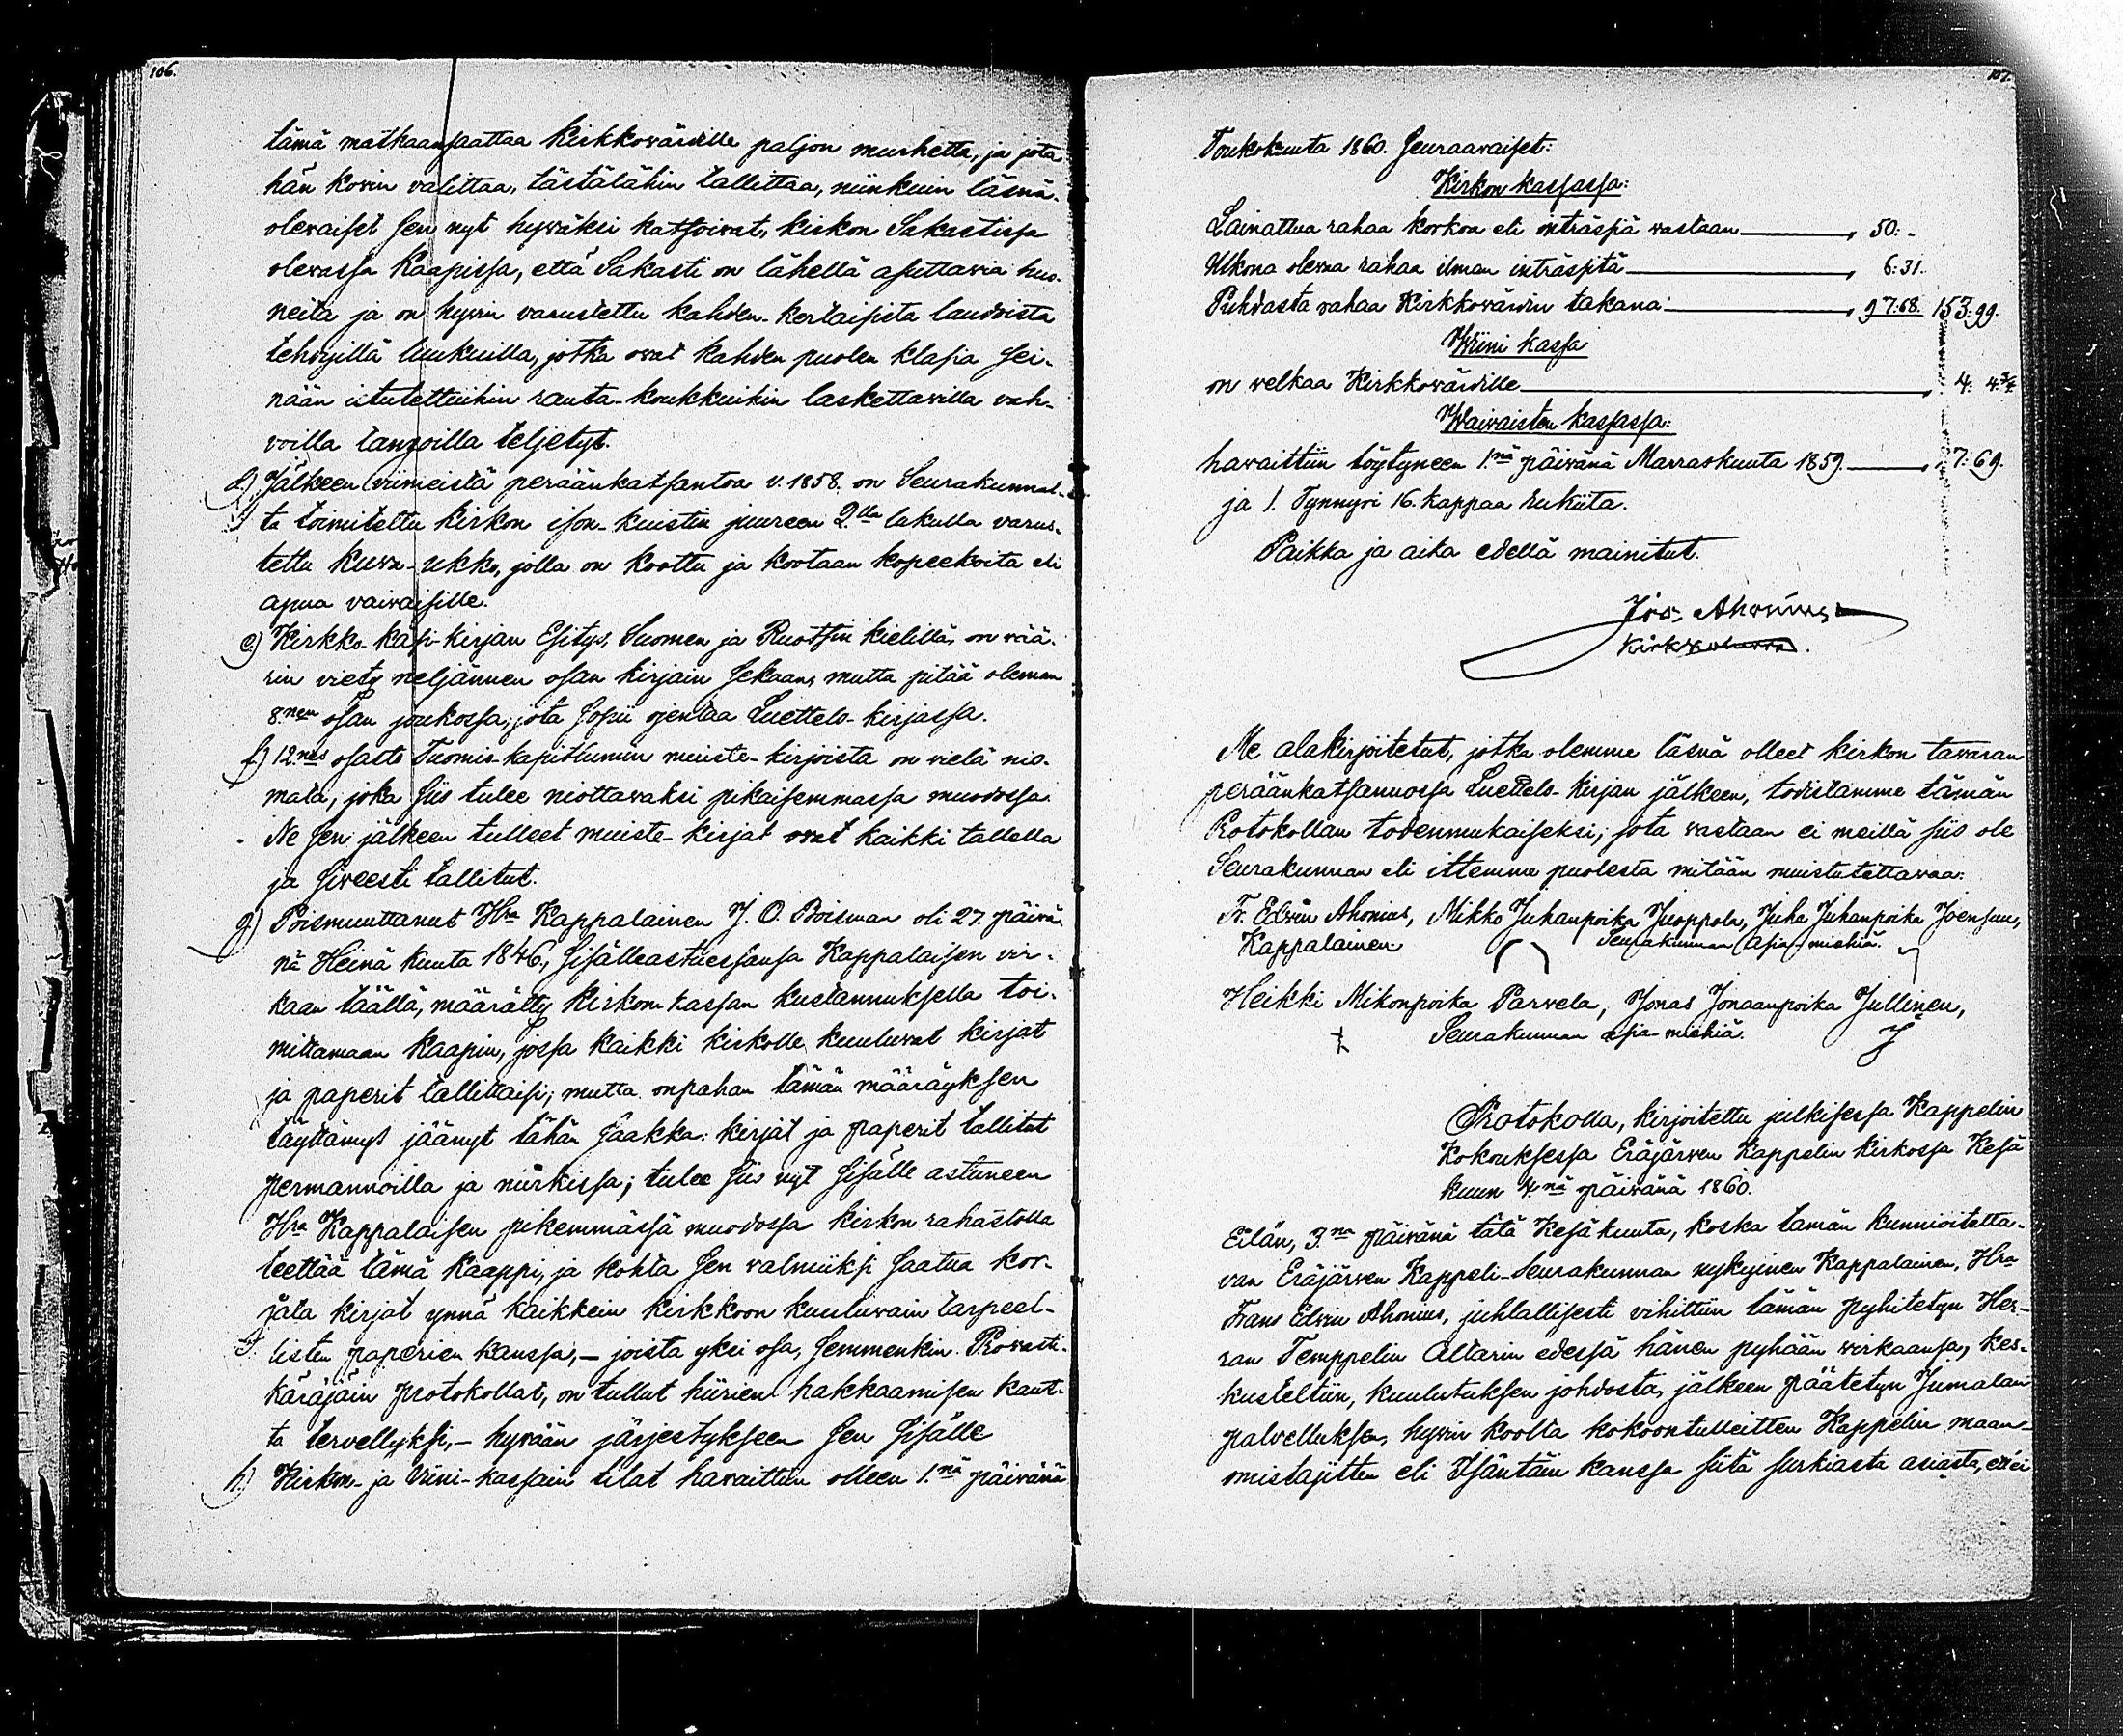 106.
tämä matkaansaattaa Kirkkovärdille paljon murhetta, ja jota
hän kovin valittaa, tästälähin tallittaa, niinkuin läsnä-
olevaiset sen nyt hyväksi katsoivat, kirkon Sakastissa
olevassa Kaapissa, että Sakasti on lähellä asuttavia huo-
neita ja on hyvin varustettu kahden-kertaisista laudoista
tehdyillä luukuilla, jotka ovat kahden puolen klasia sei-
nään istutettuihin rauta-koukkuihin laskettavilla vah-
voilla tangoilla teljetyt.
d) Jälkeen viimeistä peräänkatsantoa v. 1858. on Seurakunnal-
ta toimitettu kirkon ison-kuistin juureen 2lla lukulla varus-
tettu kuva-ukko, jolla on koottu ja kootaan kopeekoita eli
apua vaivaisille.
e) Kirkko-käsi-kirjan Esitys, Suomen ja Ruottin kielillä, on vää-
rin viety neljännen osan kirjain sekaan, mutta pitää oleman
8nen osan joukossa, jota sopii ojentaa Luettelo-kirjassa.
f) 12nes osasto Tuomio-kapitlumin muisto-kirjoista on vielä nio-
mata, joka siis tulee niottavaksi pikaisemmassa muodossa.
Ne sen jälkeen tulleet muisto-kirjat ovat kaikki tallella
ja siveesti tallitut.
g.) Poismuuttanut Hra Kappalainen J. O. Boisman oli 27. päivä-
nä Heinä kuuta 1846, sisälleastuessansa Kappalaisen vir-
kaan täällä, määrätty kirkon kassan kustannuksella toi-
mittamaan kaapin, jossa kaikki kirkolle kuuluvat kirjat
ja paperit tallittaisi; mutta onpahan tämän määräyksen
täyttämys jäänyt tähän saakka: kirjat ja paperit tallitut
permannoilla ja nurkissa; tulee siis nyt sisälle astuneen
Hra Kappalaisen pikemmässä muodossa kirkon rahastolla
teettää tämä kaappi, ja kohta sen valmiiksi saatua kor-
jata kirjat ynnä kaikkein kirkkoon kuuluvain tarpeel-
listen paperien kanssa, – joista yksi osa, semmenkin Provasti-
käräjäin protokollat, on tullut hiirien hakkaamisen kaut-
ta tervellyksi, – hyvään järjestykseen sen sisälle
h.) Kirkon- ja Viini-kassain tilat havaittiin olleen 1.nä päivänä
107.
Toukokuuta 1860. Seuraavaiset:
Kirkon kassassa:
Lainattua rahaa korkoa eli inträssiä vastaan 50:-
Ulkona olevaa rahaa ilman inträssitä 6:31.
Puhdasta rahaa Kirkkovärdin takana: 97:68. 153:99.
Wiini kassa
on velkaa Kirkkovärdille 4: 4¾
Waivaisten kassassa:
havaittiin löytyneen 1.nä päivänä Marraskuuta 1859. 7:69.
ja 1. Tynnyri 16. kappaa rukiita.
Paikka ja aika edellä mainitut.
Jos. Ahonius,
Kirkkoherra.
Me alakirjoitetut, jotka olemme läsnä olleet kirkon tavaran
peräänkatsannossa Luettelo-kirjan jälkeen, todistamme tämän
Protokollan todenmukaiseksi; jota vastaan ei meillä siis ole
Seurakunnan eli ittemme puolesta mitään muistutettavaa.
Fr. Edvin Ahonius, Mikko Juhanpoika Juoppola, Juha Juhanpoika Joensuu,
Kappalainen Seurakunnan Asia-miehiä.
Heikki Mikonpoika Parvela, Jonas Jonaanpoika Jullinen,
Seurakunnan asia-miehiä.
Protokolla, kirjoitettu julkisessa Kappelin
Kokouksessa Eräjärven Kappelin Kirkossa Kesä
kuun 4.nä päivänä 1860.
Eilän, 3.na päivänä tätä Kesäkuuta, koska tämän kunnioitetta-
van Eräjärven Kappeli-Seurakunnan nykyinen Kappalainen, Hra
Frans Edvin Ahonius, juhlallisesti vihittiin tämän pyhitetyn Her-
ran Temppelin Altarin edessä hänen pyhään virkaansa, kes-
kusteltiin, kuulutuksen johdosta, jälkeen päätetyn Jumalan
palvelluksen, hyvin koolta kokoontulleitten Kappelin maan-
omistajitten eli Isäntäin kanssa siitä surkiasta asiasta, ett'ei